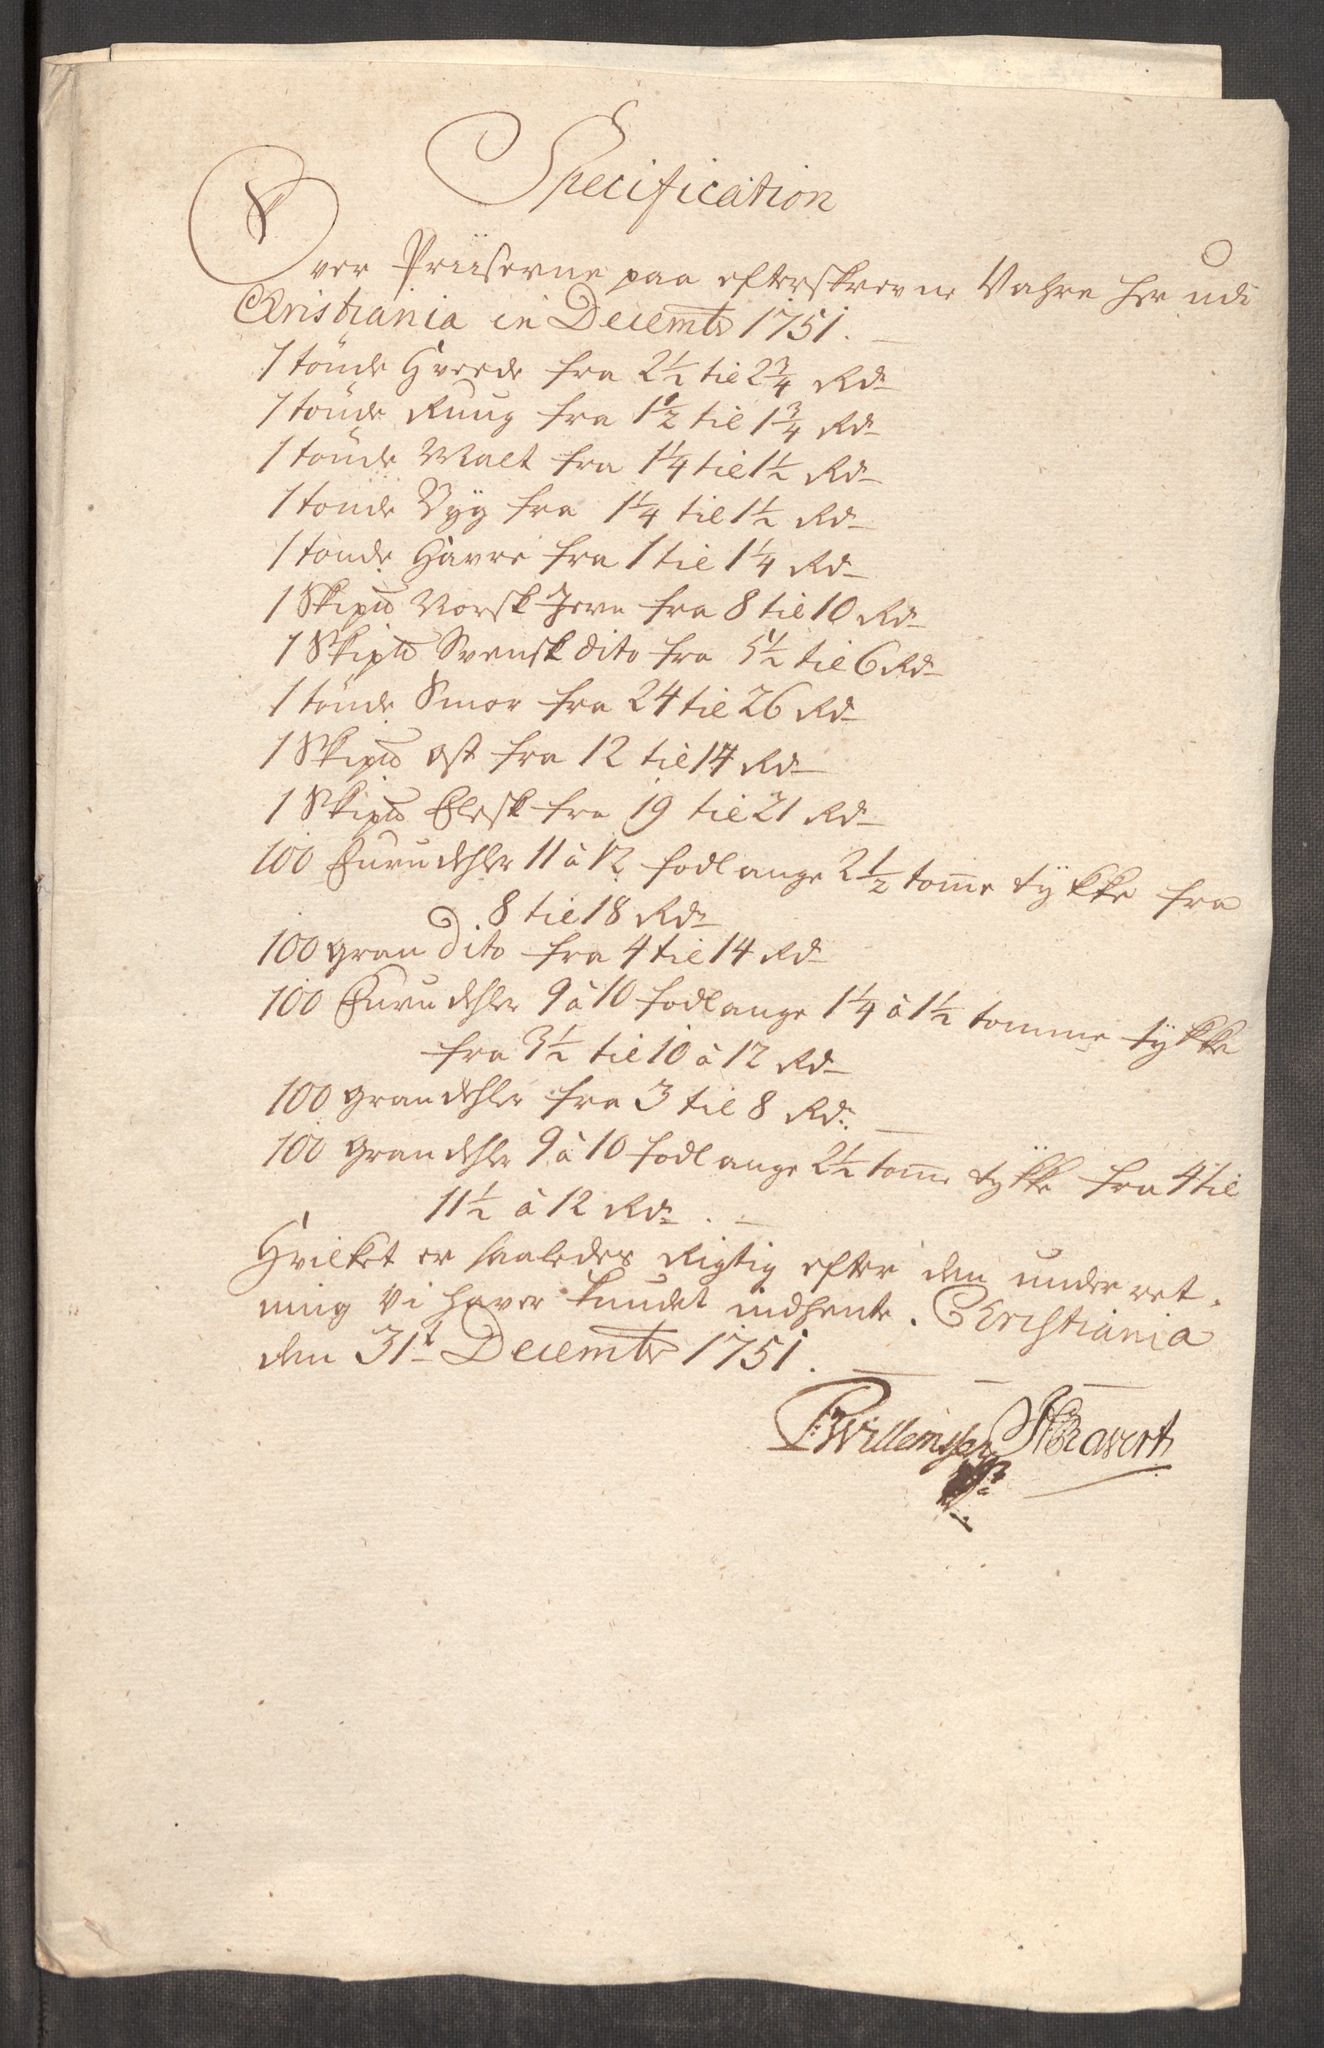 Specification
Over Priiserne paa efterskrevne Vahre her udi
Christiania in Decembr 1751.
1 tönde Hvede fra 2 1/2 til 2 3/4 Rdr
1 tönde Ruug fra 1 1/2 til 1 3/4 Rdr
1 tönde Malt fra 1 1/4 til 1 1/2 Rdr
1 tönde Byg fra 1 1/4 til 1 1/2 Rdr
1 tönde Havre fra 1 til 1 1/4 Rdr
1 Skipd Norsk Jern fra 8 til 10 Rdr
1 Skipd Svensk dito fra 5 1/2 til 6 Rdr
1 tönde Smör fra 24 til 26 Rdr
1 Skipd ost fra 12 til 14 Rdr
1 Skipd Flesk fra 19 til 21 Rdr
100 Furu dehler 11 à 12 fod lange 2 1/2 tomme tykke fra
8 til 18 Rdr
100 gran Dito fra 4 til 14 Rdr
100 Furu dehler 9 à 10 fod lange 1 1/4 à 1 1/2 tomme tykke
fra 3 1/2 til 10 à 12 Rdr
100 gran dehler fra 3 til 8 Rdr.
100 gran dehler 9 à 10 fod lange 2 1/2 tomme tykke fra 4 til
11 1/2 à 12 Rdr.
Hvilket er saaledes Rigtig efter den underret-
ning vi haver kundet indhente. Christiania
den 31t Decembr 1751.
Willemsen